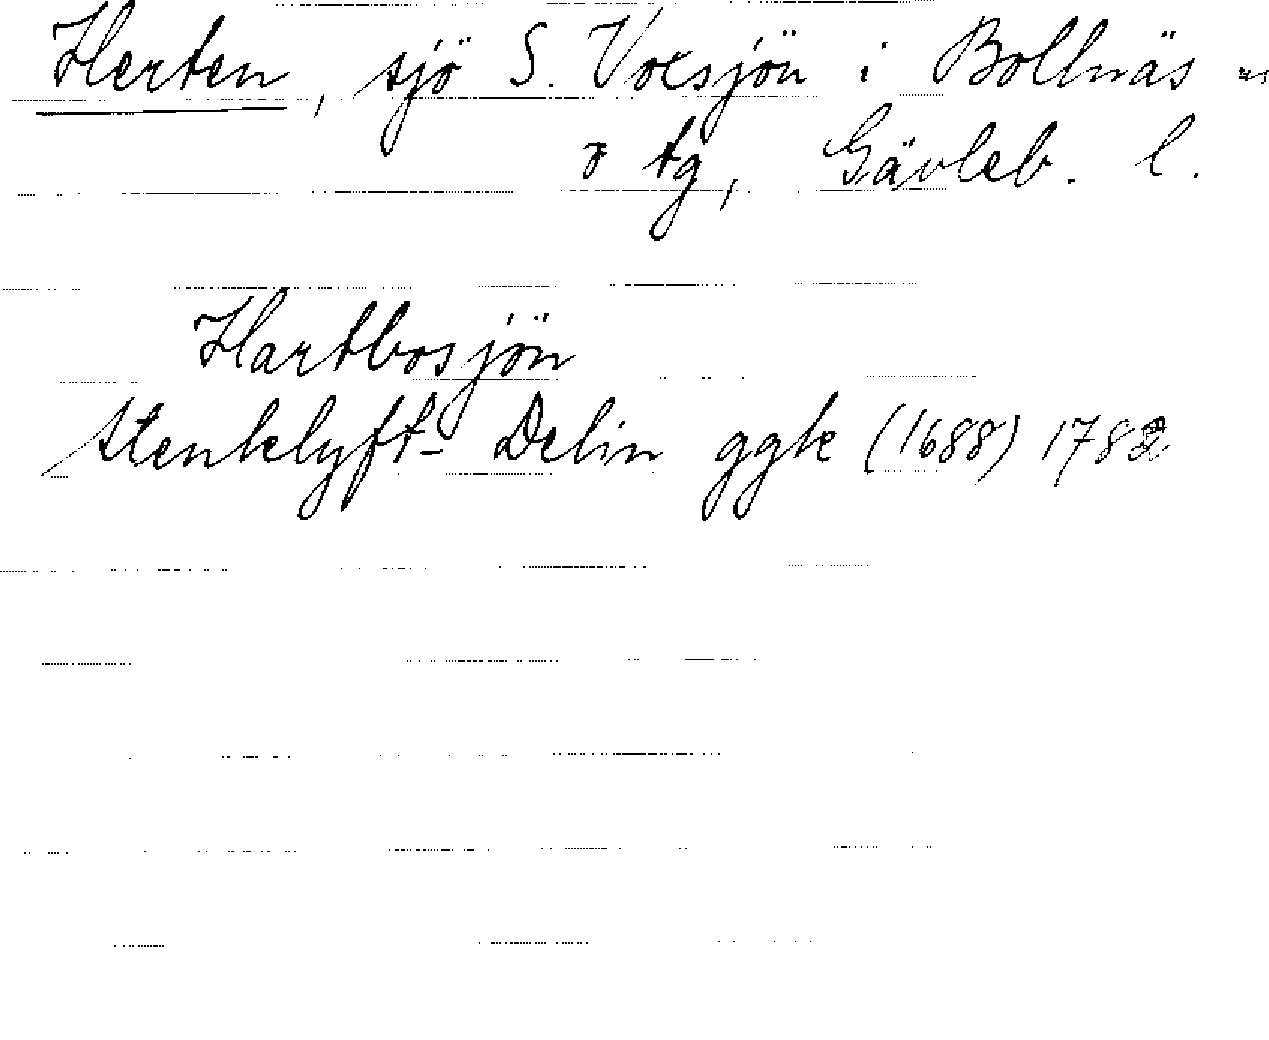 Herten, sjö S. Voxsjön i Bollnäs sn
o tg, Gävleb. l.
Hartbosjön
Stenklyft- Delin ggk (1688) 1782